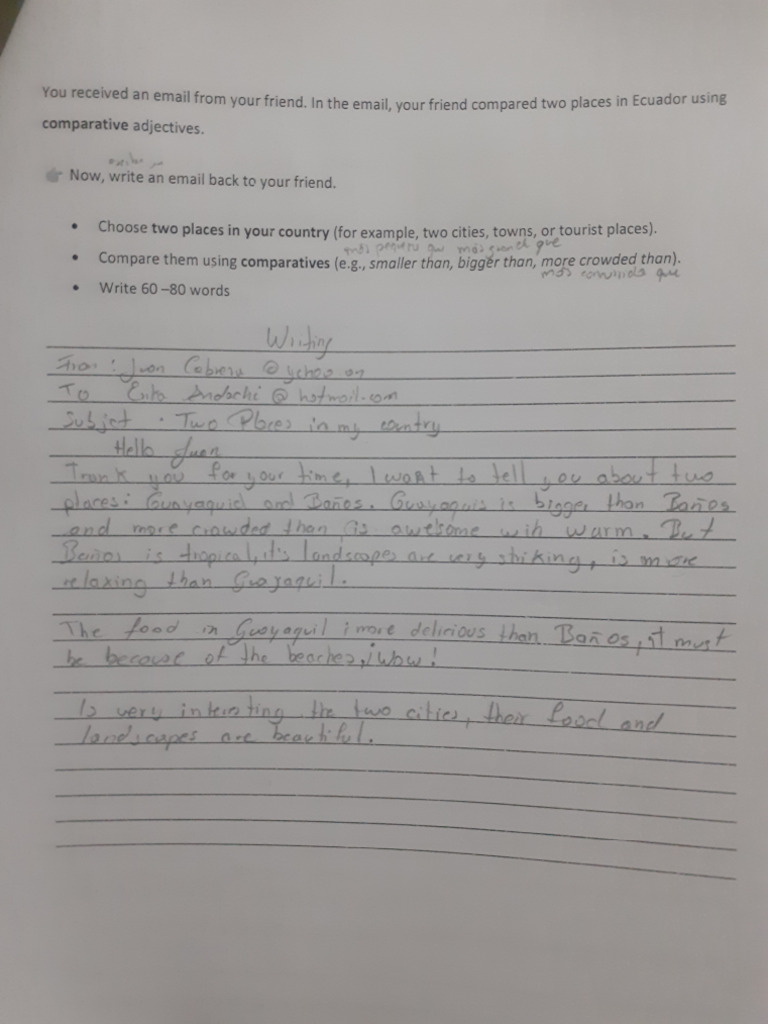 You received an email from your friend. In the email, your friend compared two places in Ecuador using
comparative adjectives.
Now, write an email back to your friend.
• Choose two places in your country (for example, two cities, towns, or tourist places).
más que más que
• Compare them using comparatives (e.g., smaller than, bigger than, more crowded than).
más que
• Write 60–80 words
Writing
Juan Cabrera @
To Andachi @ hotmail.com
Subjet . Two Places in my country
Hello Juan
Trank you for your time, I want to tell you about two
places: and Baños. is bigger than Baños
and more crowded than is awelsome wih warm. But
Baños is tropical, it's landscapes are very striking, is more
relaxing than Guayaquil.
The food in Guayaquil i more delicious than Baños, it must
be because of the beaches, ¡Wow!
Is very interesting the two cities, their food and
landscapes are beautiful.